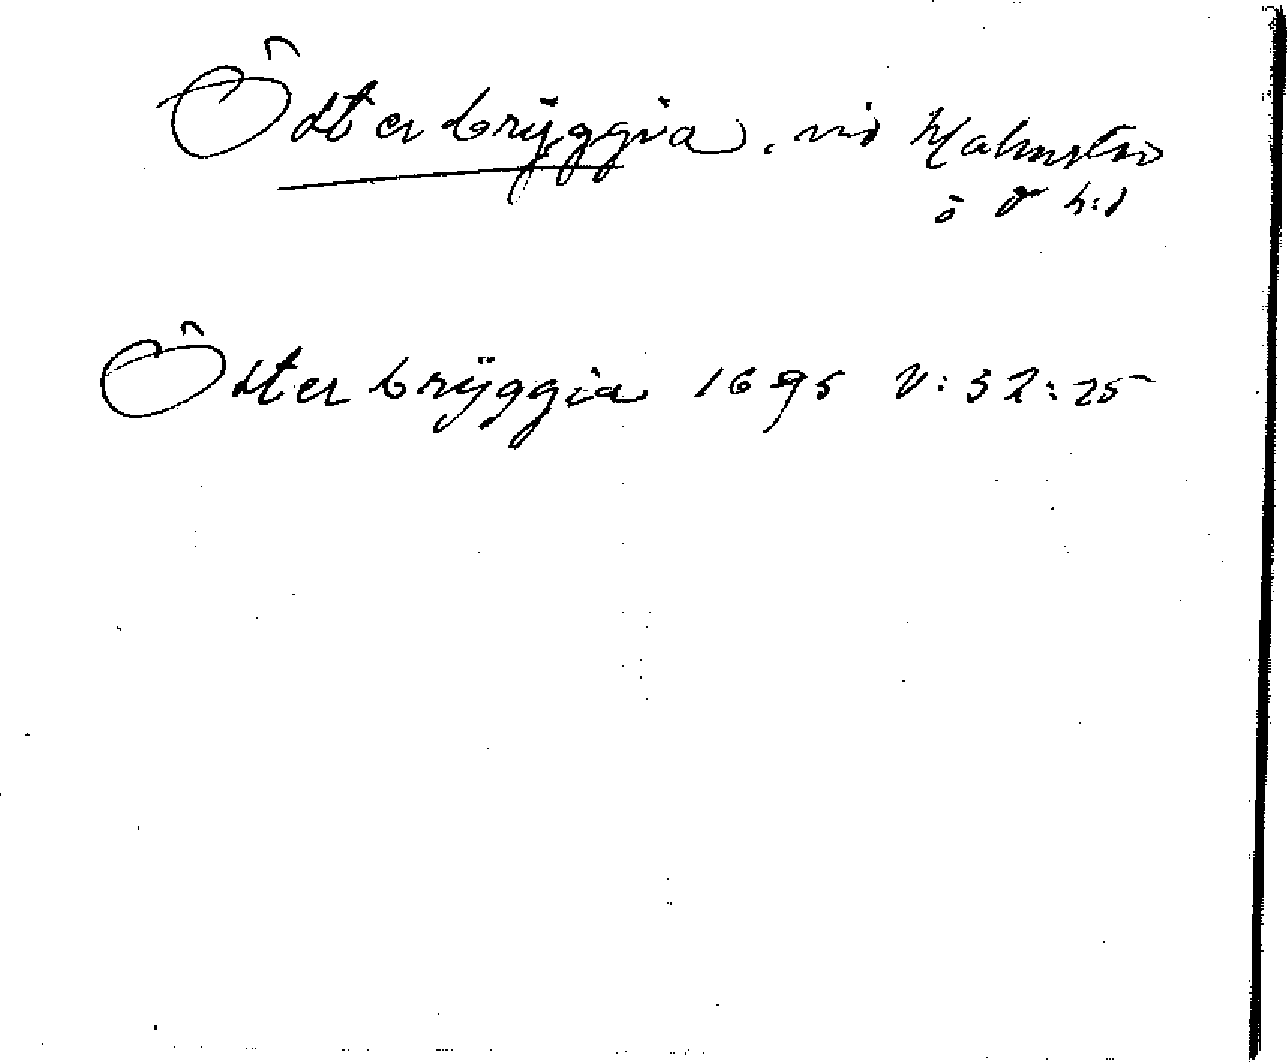 Österbrÿggia, vid Halmstad
ö
Österbrÿggia 1695 V:32:25